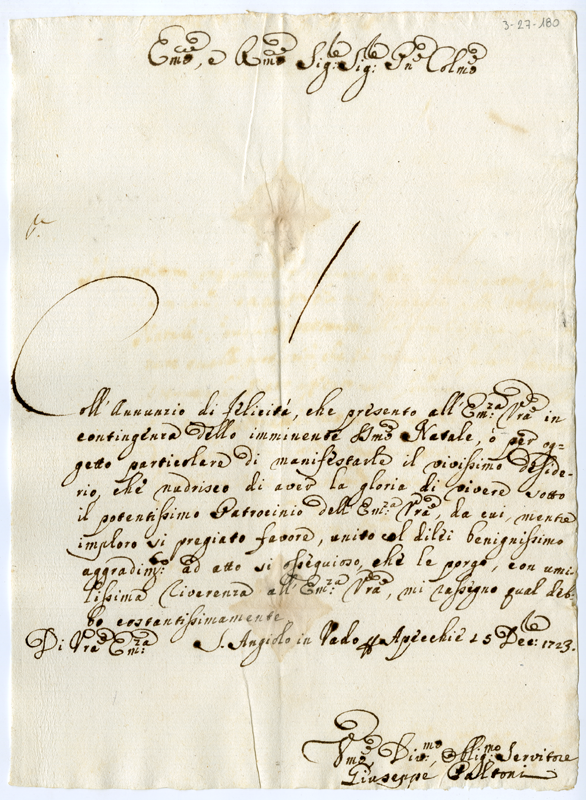 3-27-180
Emo, e Rmo Sig: Sig: Pne Colmo
Coll'Annunzio di felicitá, che presento all'Em:za Vra in
contingenza dello imminente Smo Natale, ò per og=
getto particolare di manifestarle il vivissimo deside=
rio, che nudrisco di aver la gloria di vivere sotto
il potentissimo Patrocinio dell'Em:za Vra, da cui, mentre
imploro si pregiato favore, unito al dilei benignissimo
aggradim:to ad atto si ossequioso, che le porgo, con umi
lissima riverenza all'Em:za Vra, mi rassegno qual deb=
bo costantissimamente
Di Vra Em:za S. Angiolo in Vado Apecchie 15 Dec: 1723.
Vmo Div:mo, Oblig:mo Servitore
Giuseppe